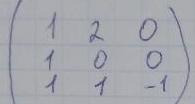 1 2 0
1 0 0
1 1 -1